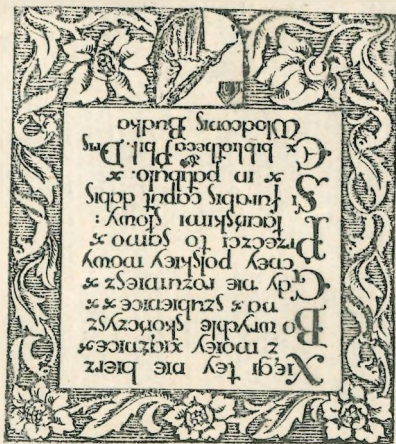 Xięgi tey nie bierz
z moiey xiążnice
Bo wrychle skończysz
na szubienice
Gdy nie rozumiesz
cney polskiey mowy
Przeczci to samo
łacińskimi słowy:
Si furabis caput dabis
in patibulo.
Ex bibliotheca Phil. Dris
Wlodconis Budka